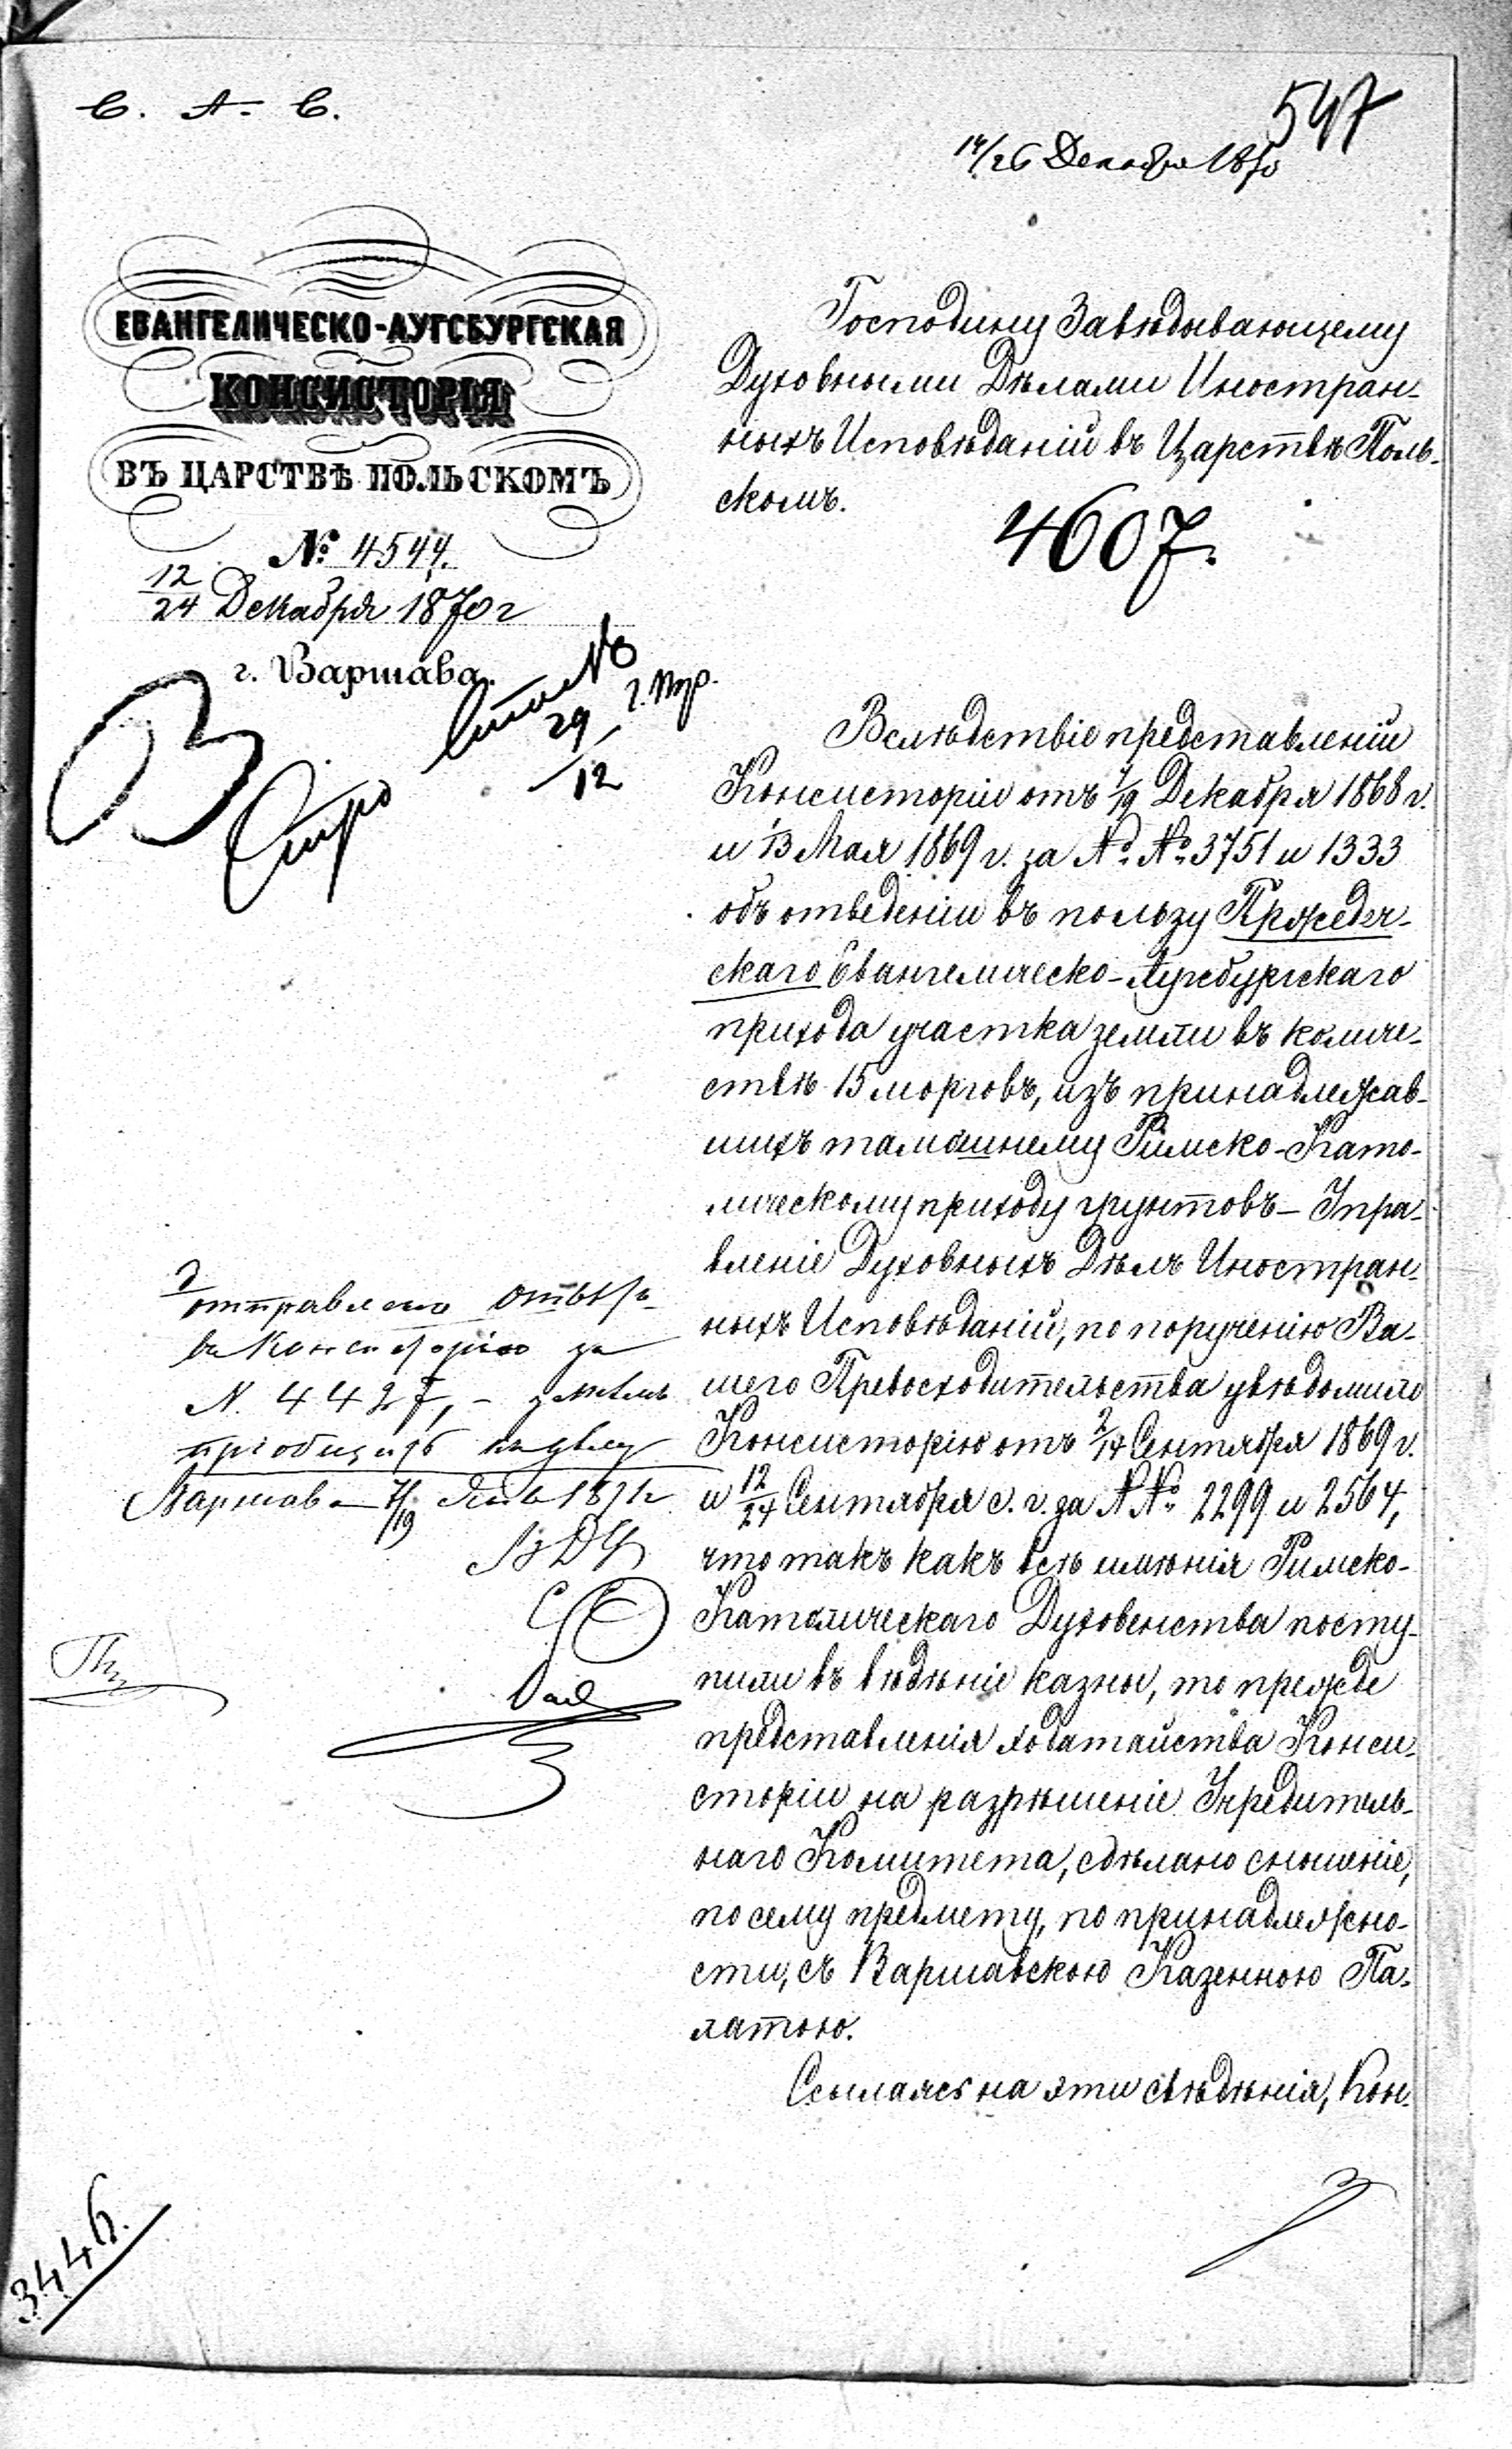 С. А. С.
547
14/26 Декабря 1870
ЕВАНГЕЛИЧЕСКО-АУГСБУРГСКАЯ
КОНСИСТОРІЯ
ВЪ ЦАРСТВѢ ПОЛЬСКОМЪ
№ 4544.
12/24 Декабря 1870 г
г. Варшава.
29/12
Господину Завѣдывающему
Духовными Дѣлами Иностран-
ныхъ Исповѣданій въ Царствѣ Поль-
скомъ.
4607.
Вслѣдствіе представленій
Консисторіи отъ 7/19 Декабря 1868 г.
и 1/13 Мая 1869 г. за №№ 3751 и 1333
объ отведеніи въ пользу Пржедеч-
скаго Евангелическо-Аугсбургскаго
прихода участка земли въ количе-
ствѣ 15 морговъ, изъ принадлежав-
шихъ тамошнему Римско-Като-
лическому приходу грунтовъ – Упра-
вленіе Духовныхъ Дѣлъ Иностран-
ныхъ Исповѣданій, по порученію Ва-
шего Превосходительства увѣдомило
Консисторію отъ 2/14 Сентября 1869 г.
и 12/24 Сентября с. г. за №№ 2299 и 2564,
что такъ какъ всѣ имѣнія Римско-
Католическаго Духовенства посту-
пили въ вѣдѣніе казны, то прежде
представленія ходатайства Конси-
сторіи на разрѣшеніе Учредитель-
наго Комитета, сдѣлано сношеніе,
по сему предмету, по принадлежно-
сти, съ Варшавскою Казенною Па-
латою.
Ссылаясь на эти свѣдѣнія, Кон-
отправлено отвѣтъ
въ Консисторію за
N. 4427, –
пріобщить къ дѣлу
Варшава 7/19 Янв 1871 г
3446.